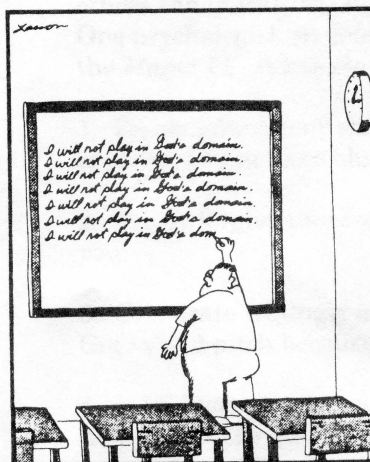 Larson
I will not play in God's domain.
I will not play in God's domain.
I will not play in God's domain.
I will not play in God's domain.
I will not play in God's domain.
I will not play in God's domain.
I will not play in God's dom